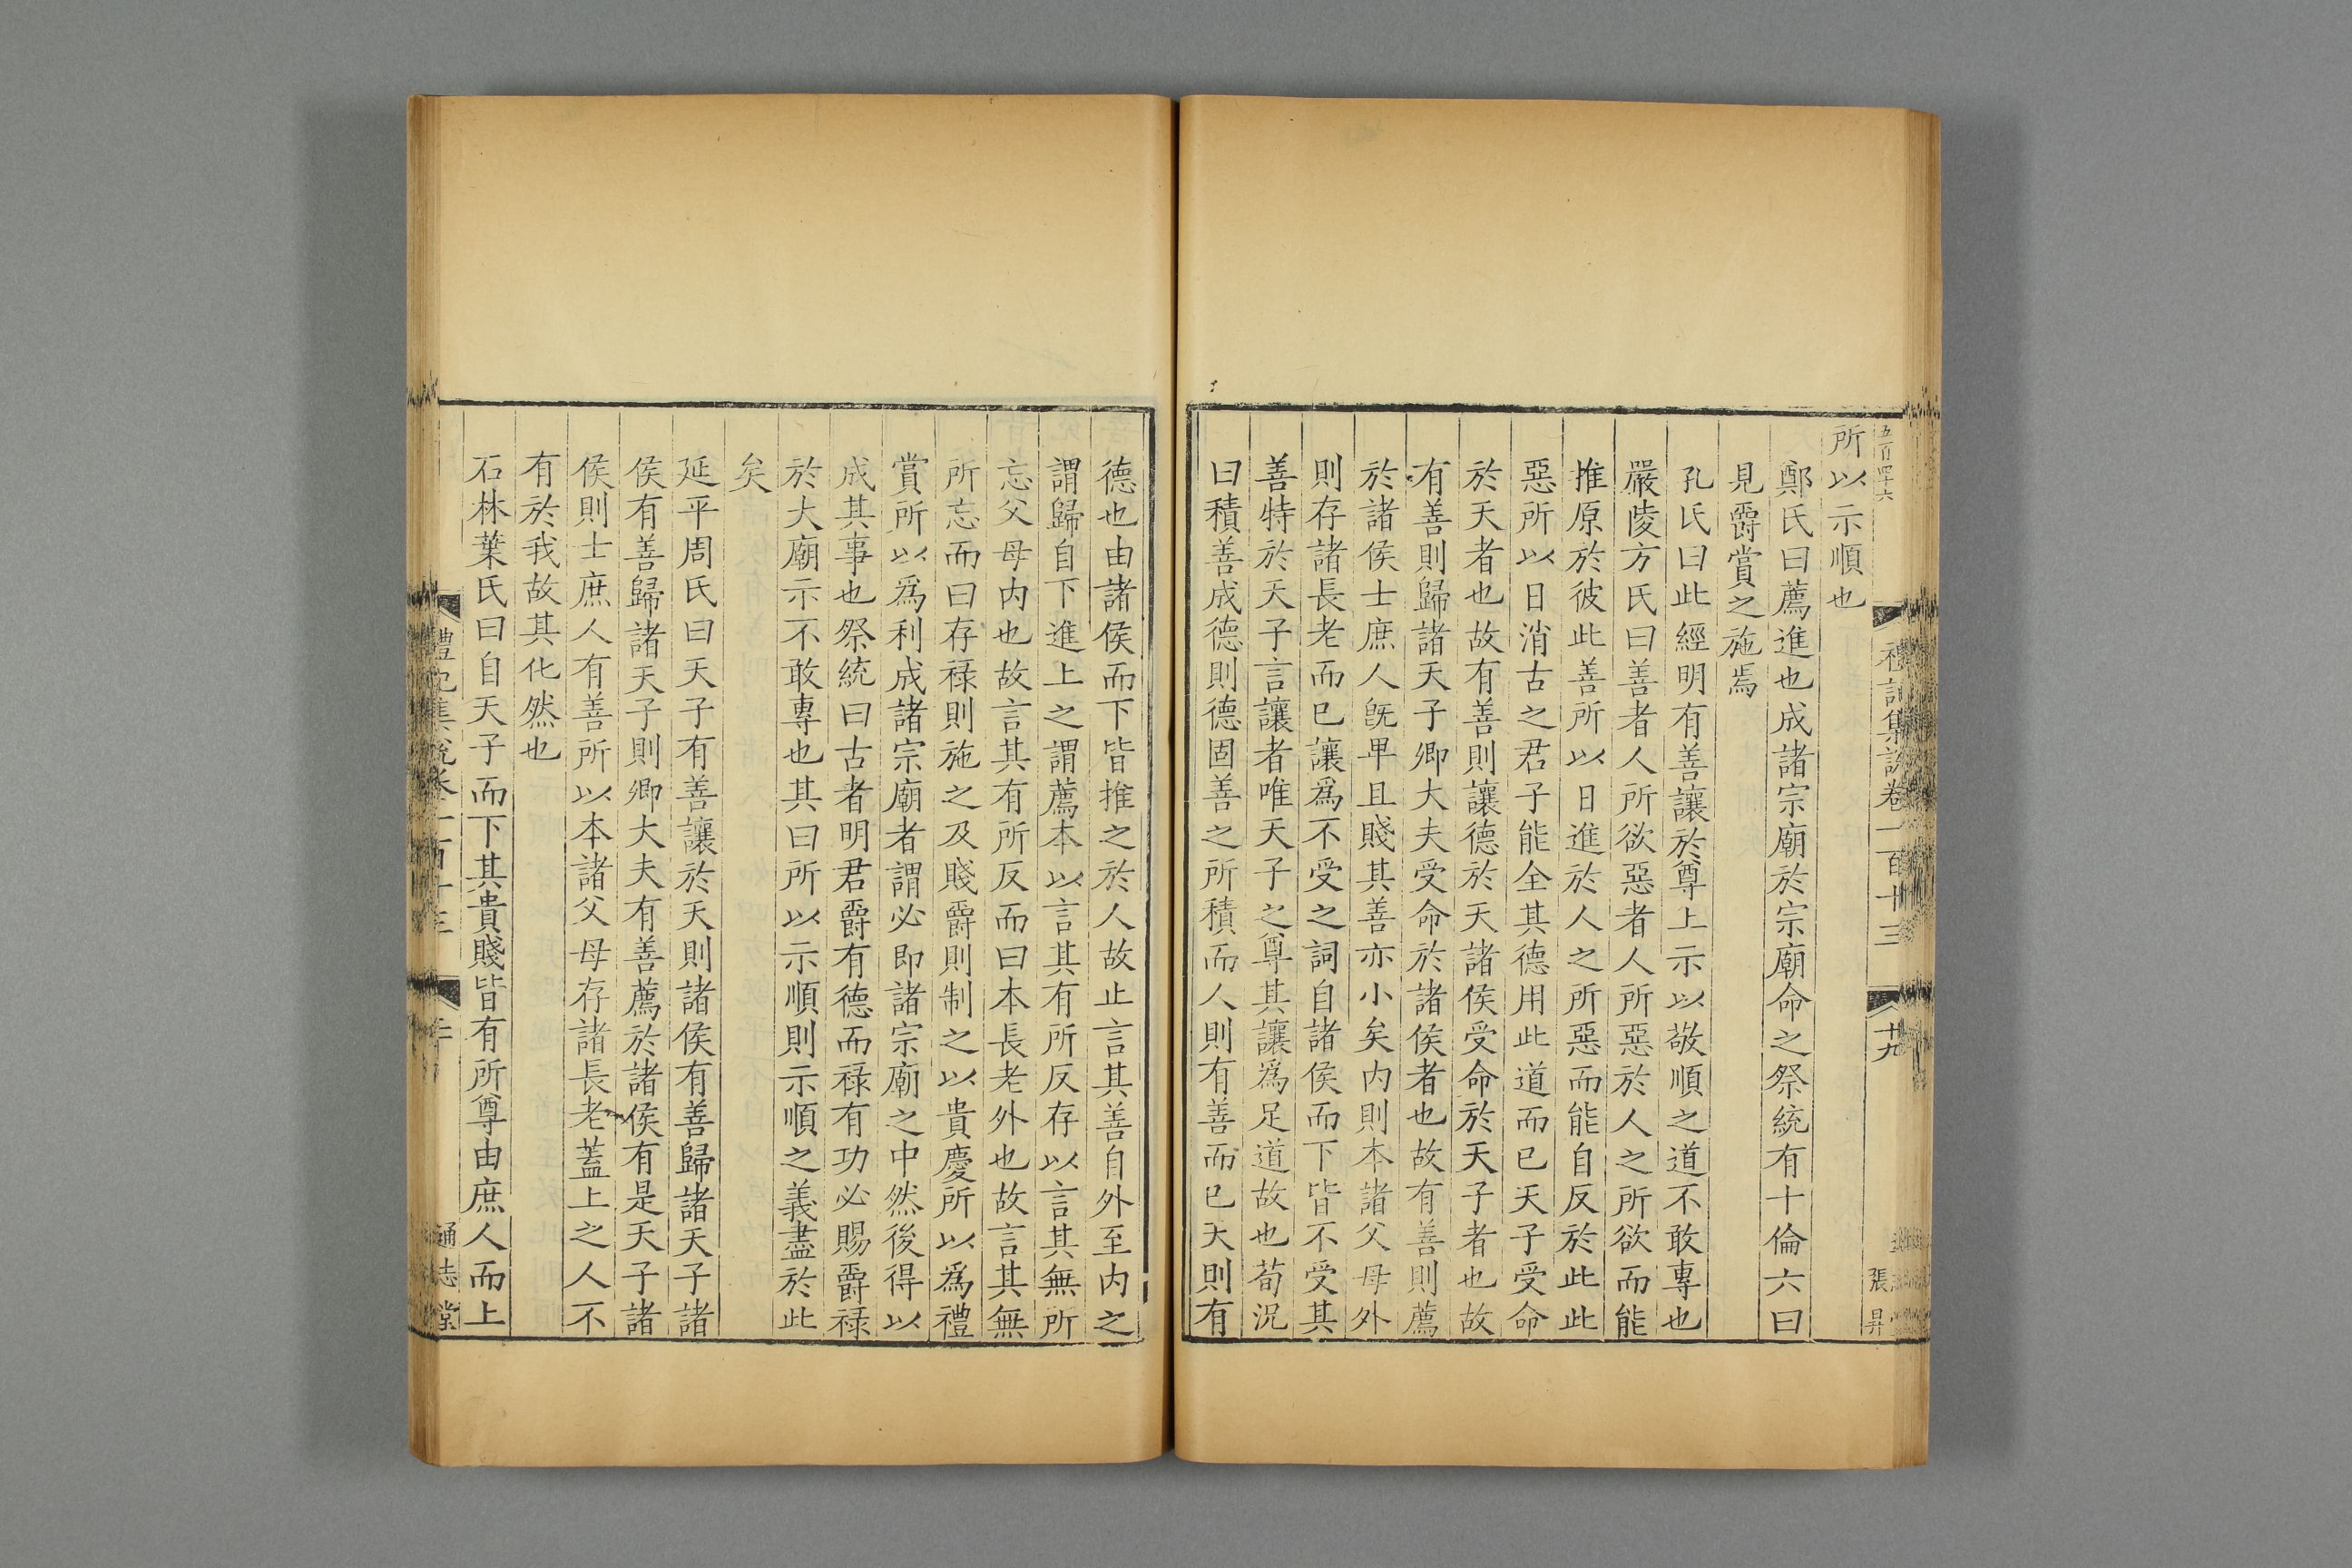 五百四十六
禮記集說卷一百十三
十九
張昇
所以示順也
鄭氏曰薦進也成諸宗廟於宗廟命之祭統有十倫六曰
見爵賞之施焉
孔氏曰此經明有善讓於尊上示以敬順之道不敢專也
嚴陵方氏曰善者人所欲惡者人所惡於人之所欲而能
推原於彼此善所以日進於人之所惡而能自反於此此
惡所以日消古之君子能全其德用此道而已天子受命
於天者也故有善則讓德於天諸侯受命於天子者也故
有善則歸諸天子卿大夫受命於諸侯者也故有善則薦
於諸侯士庶人旣卑且賤其善亦小矣内則本諸父母外
則存諸長老而已讓爲不受之詞自諸侯而下皆不受其
善特於天子言讓者唯天子之尊其讓爲足道故也荀況
曰積善成德則德固善之所積而人則有善而已天則有
德也由諸侯而下皆推之於人故止言其善自外至内之
謂歸自下進上之謂薦本以言其有所反存以言其無所
忘父母内也故言其有所反而曰本長老外也故言其無
所忘而曰存禄則施之及賤爵則制之以貴慶所以爲禮
賞所以爲利成諸宗廟者謂必即諸宗廟之中然後得以
成其事也祭統曰古者明君爵有德而禄有功必賜爵禄
於大廟示不敢專也其曰所以示順則示順之義盡於此
矣
延平周氏曰天子有善讓於天則諸侯有善歸諸天子諸
侯有善歸諸天子則卿大夫有善薦於諸侯有是天子諸
侯則士庶人有善所以本諸父母存諸長老蓋上之人不
有於我故其化然也
石林葉氏曰自天子而下其貴賤皆有所尊由庶人而上
禮記集說卷一百十三
二十
通志堂